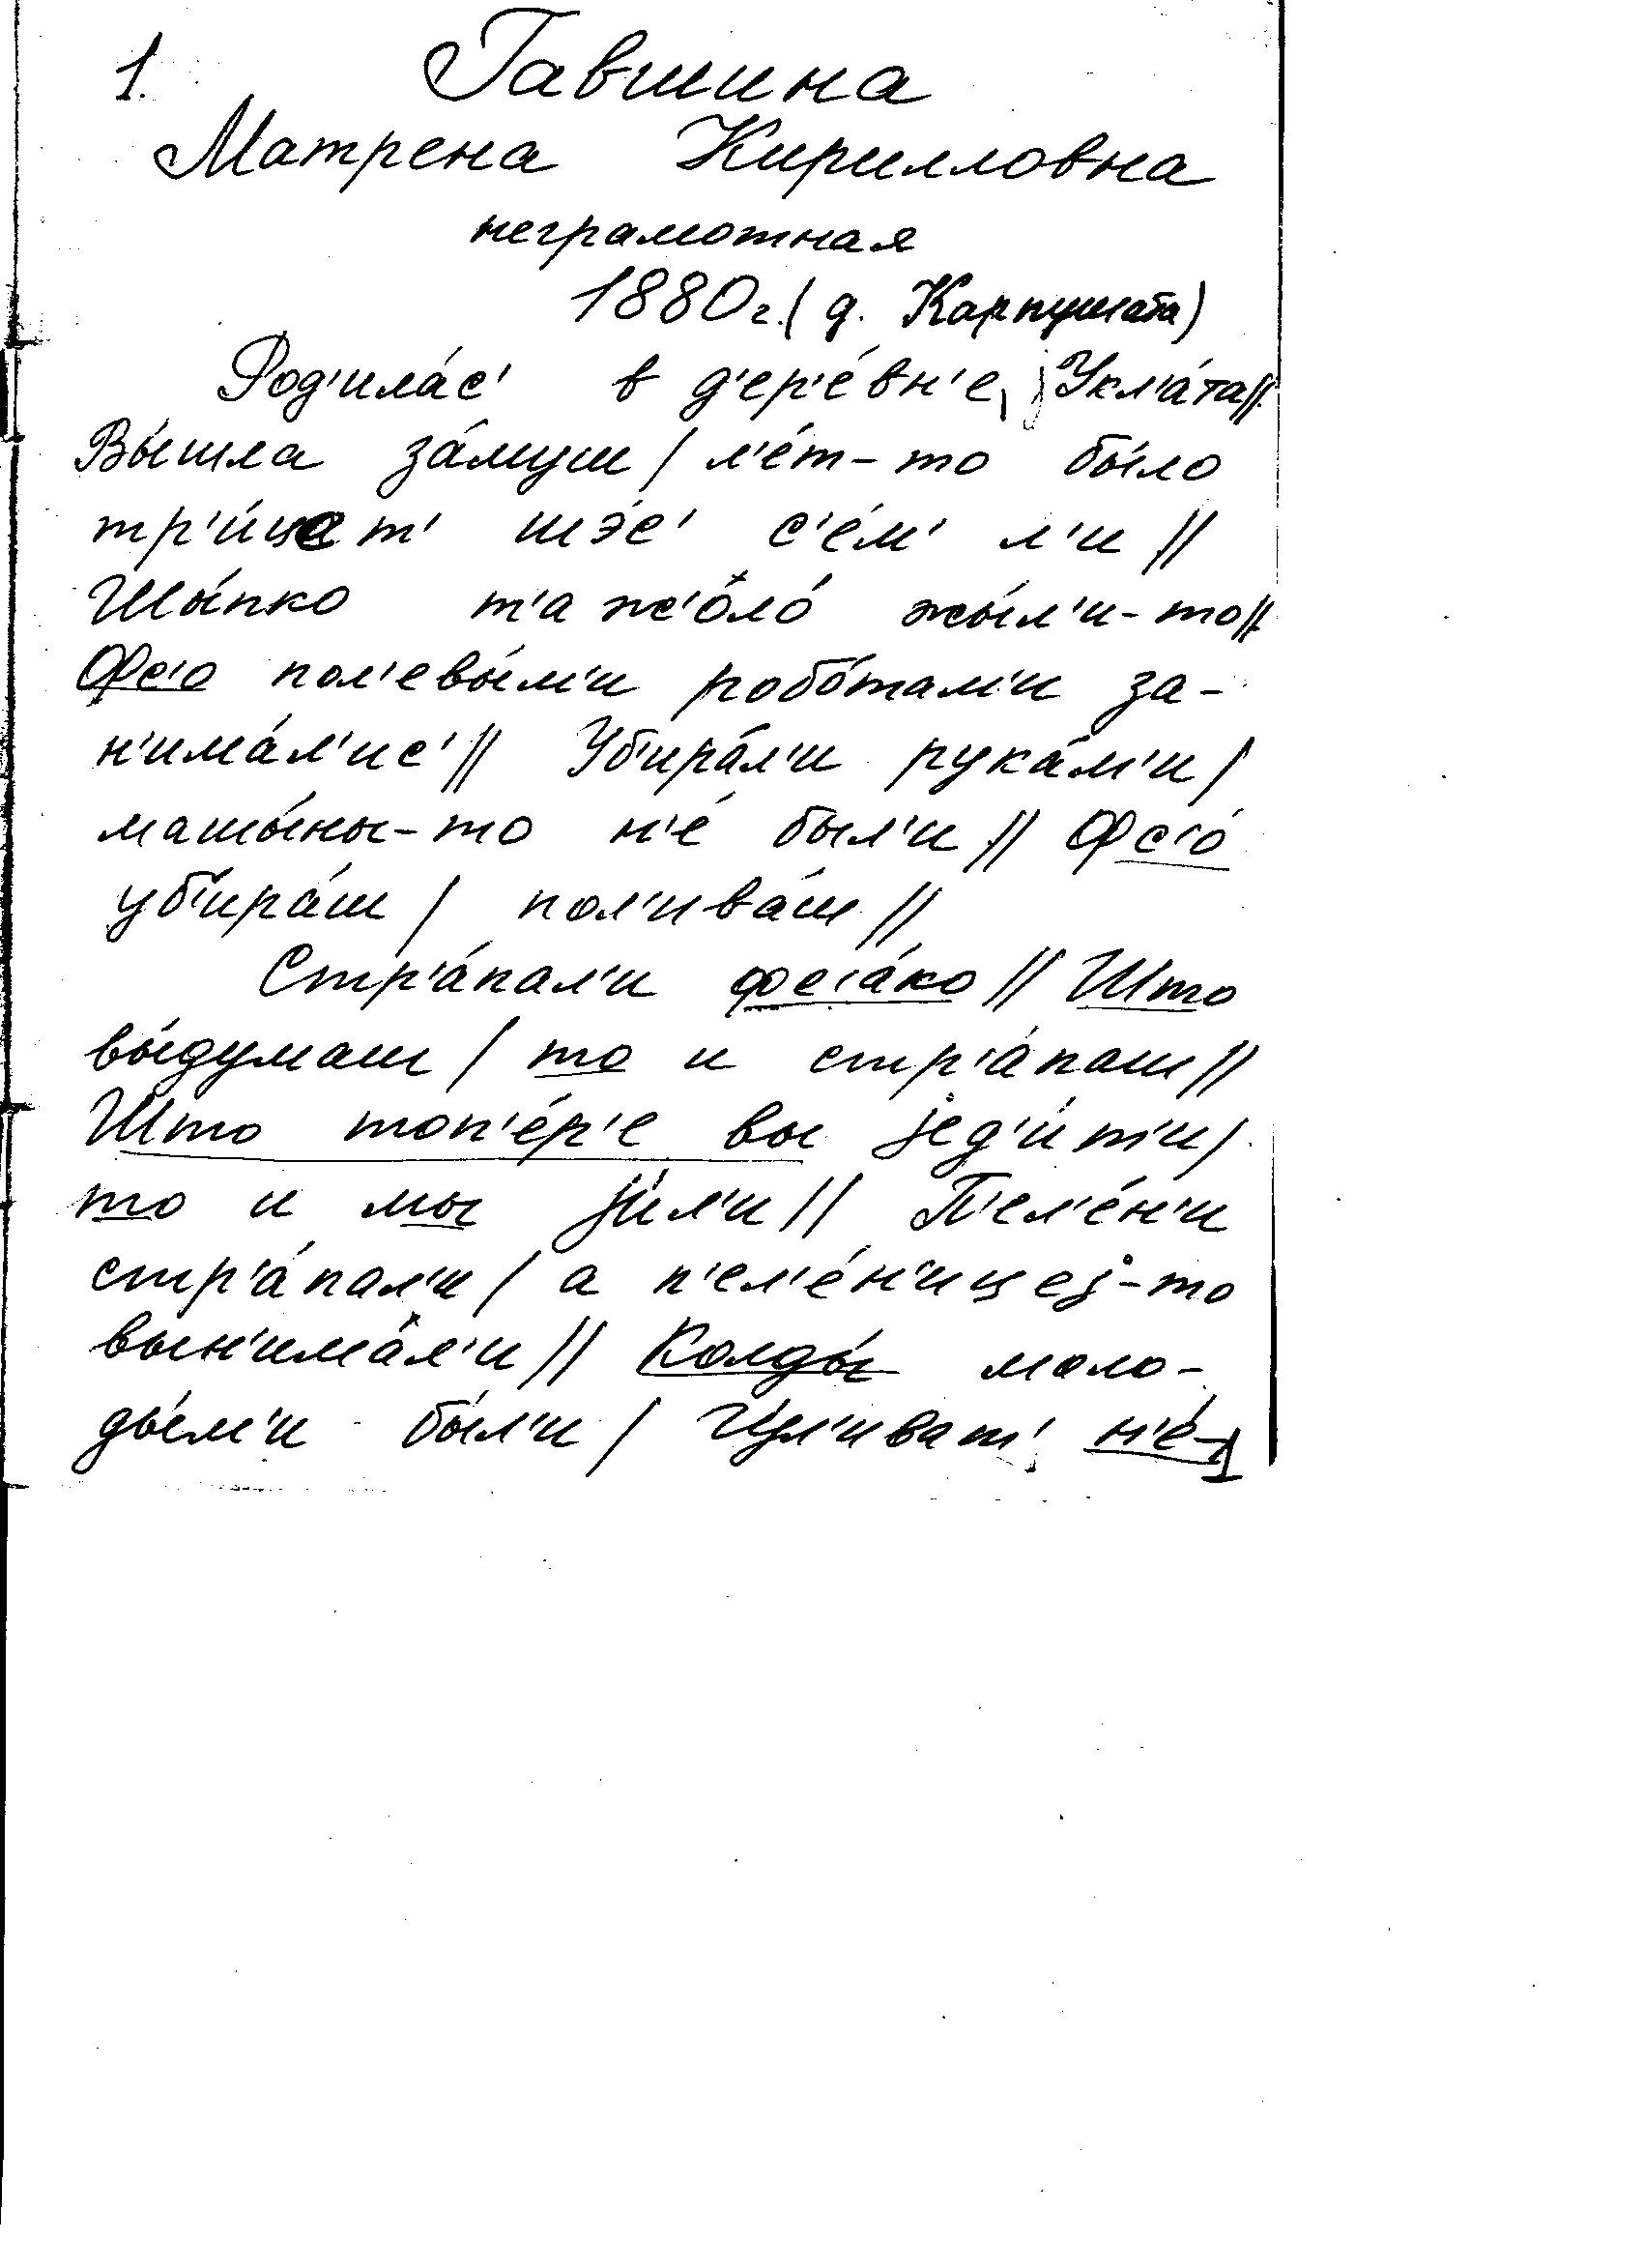 1. Гавшина
Матрена Кирилловна
неграмотная
1880г. (д. Карпушата)
Род'ила́с' в д'ер'е́вн'е Укл'а́та//
Вы́шла за́муш / л'е́т-то бы́ло
тр'и́цет' шэ́с' с'е́м' л'и //
Шы́пко т'аж'о́ло́ жы́л'и-то//
Фс'о пол'евы́м'и робо́там'и за-
н'има́л'ис' // Уб'ира́л'и рука́м'и /
машы́ны-то н'е́ был'и // Фс'о́
уб'ира́ш / пол'ива́ш //
Стр'а́пал'и фс'а́ко // Што
вы́думаш / то и стр'а́паш //
Што топ'е́р'е вы jед'и́т'и /
то и мы jи́л'и // П'ел'е́н'и
стр'а́пал'и / а п'ел'е́н'ицеj-то
вын'има́л'и // Колды́ моло-
ды́м'и бы́л'и / гул'иват' н'е́-